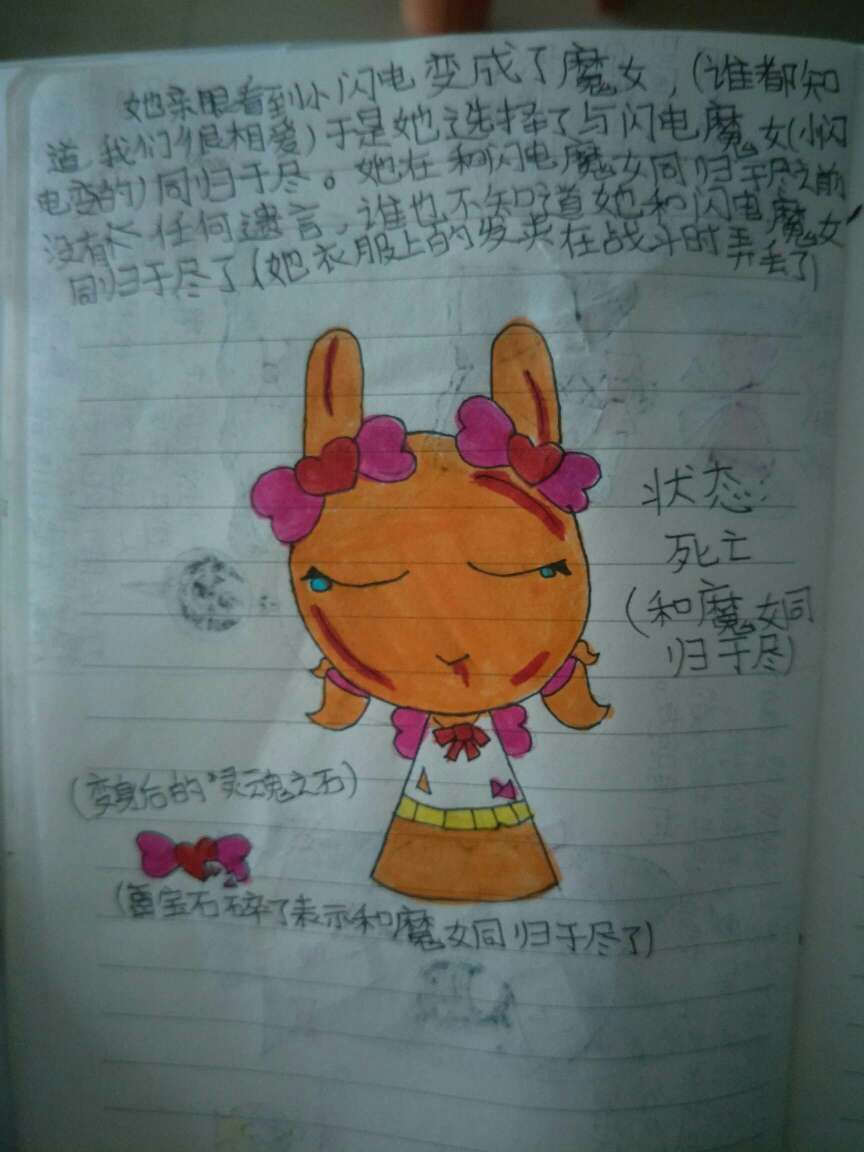 她亲眼看到小闪电变成了魔女，(谁都知
道我们很相爱)于是她选择了与闪电魔女(小闪
电变的)同归于尽。她在和闪电魔女同归于尽之前
没有任何遗言，谁也不知道她和闪电魔女
同归于尽了(她衣服上的发夹在战斗时弄丢了)
状态:
死亡
(和魔女同
归于尽)
(变身后的灵魂之石)
(宝石碎了表示和魔女同归于尽了)